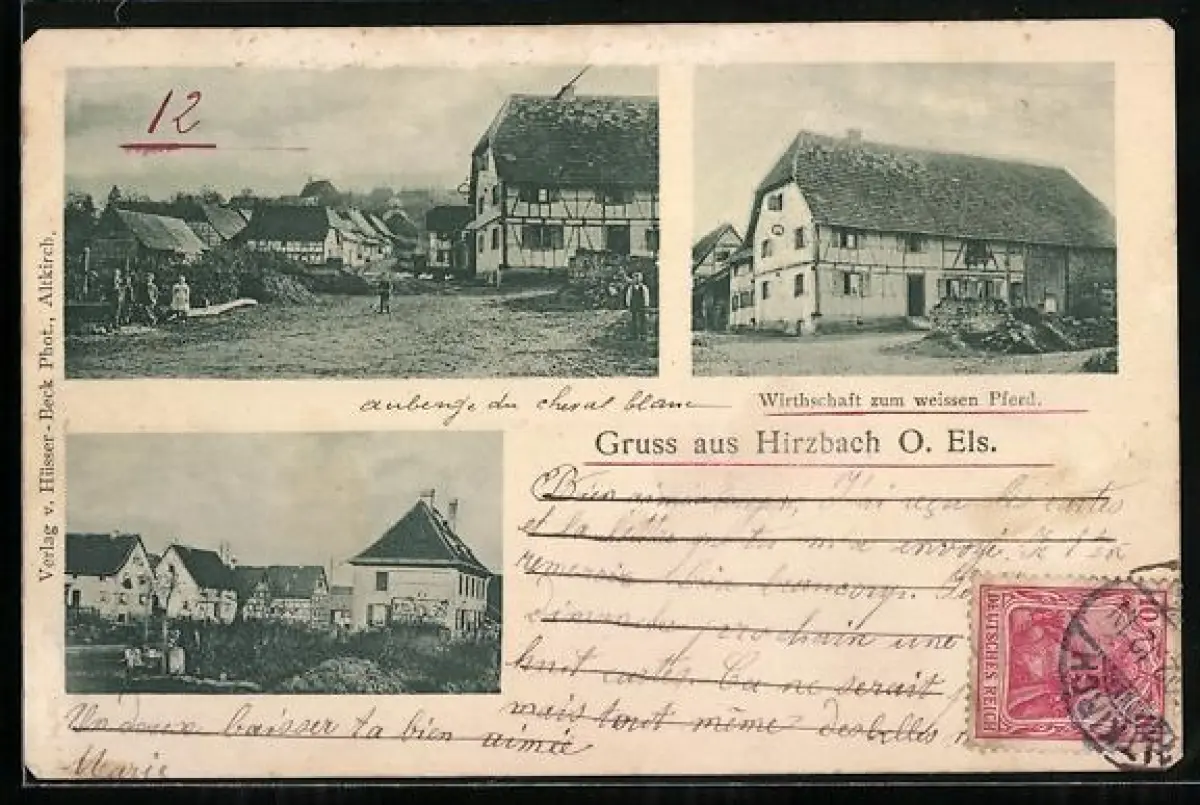 12
Verlag v. Hüsser-Beck Phot., Altkirch.
auberge du cheval blanc
Wirthschaft zum weissen Pferd.
Gruss aus Hirzbach O. Els.
Bien J'ai reçu les cartes
et la lettre que tu m'a envoyé. Je t'en
remercie bien beaucoup.
Dimanche prochain une
huit carte. Ca ne serait
mais tout même des belles
Un doux baisser ta bien aimée
Marie
10
DEUTSCHES REICH
ALTKIRCH